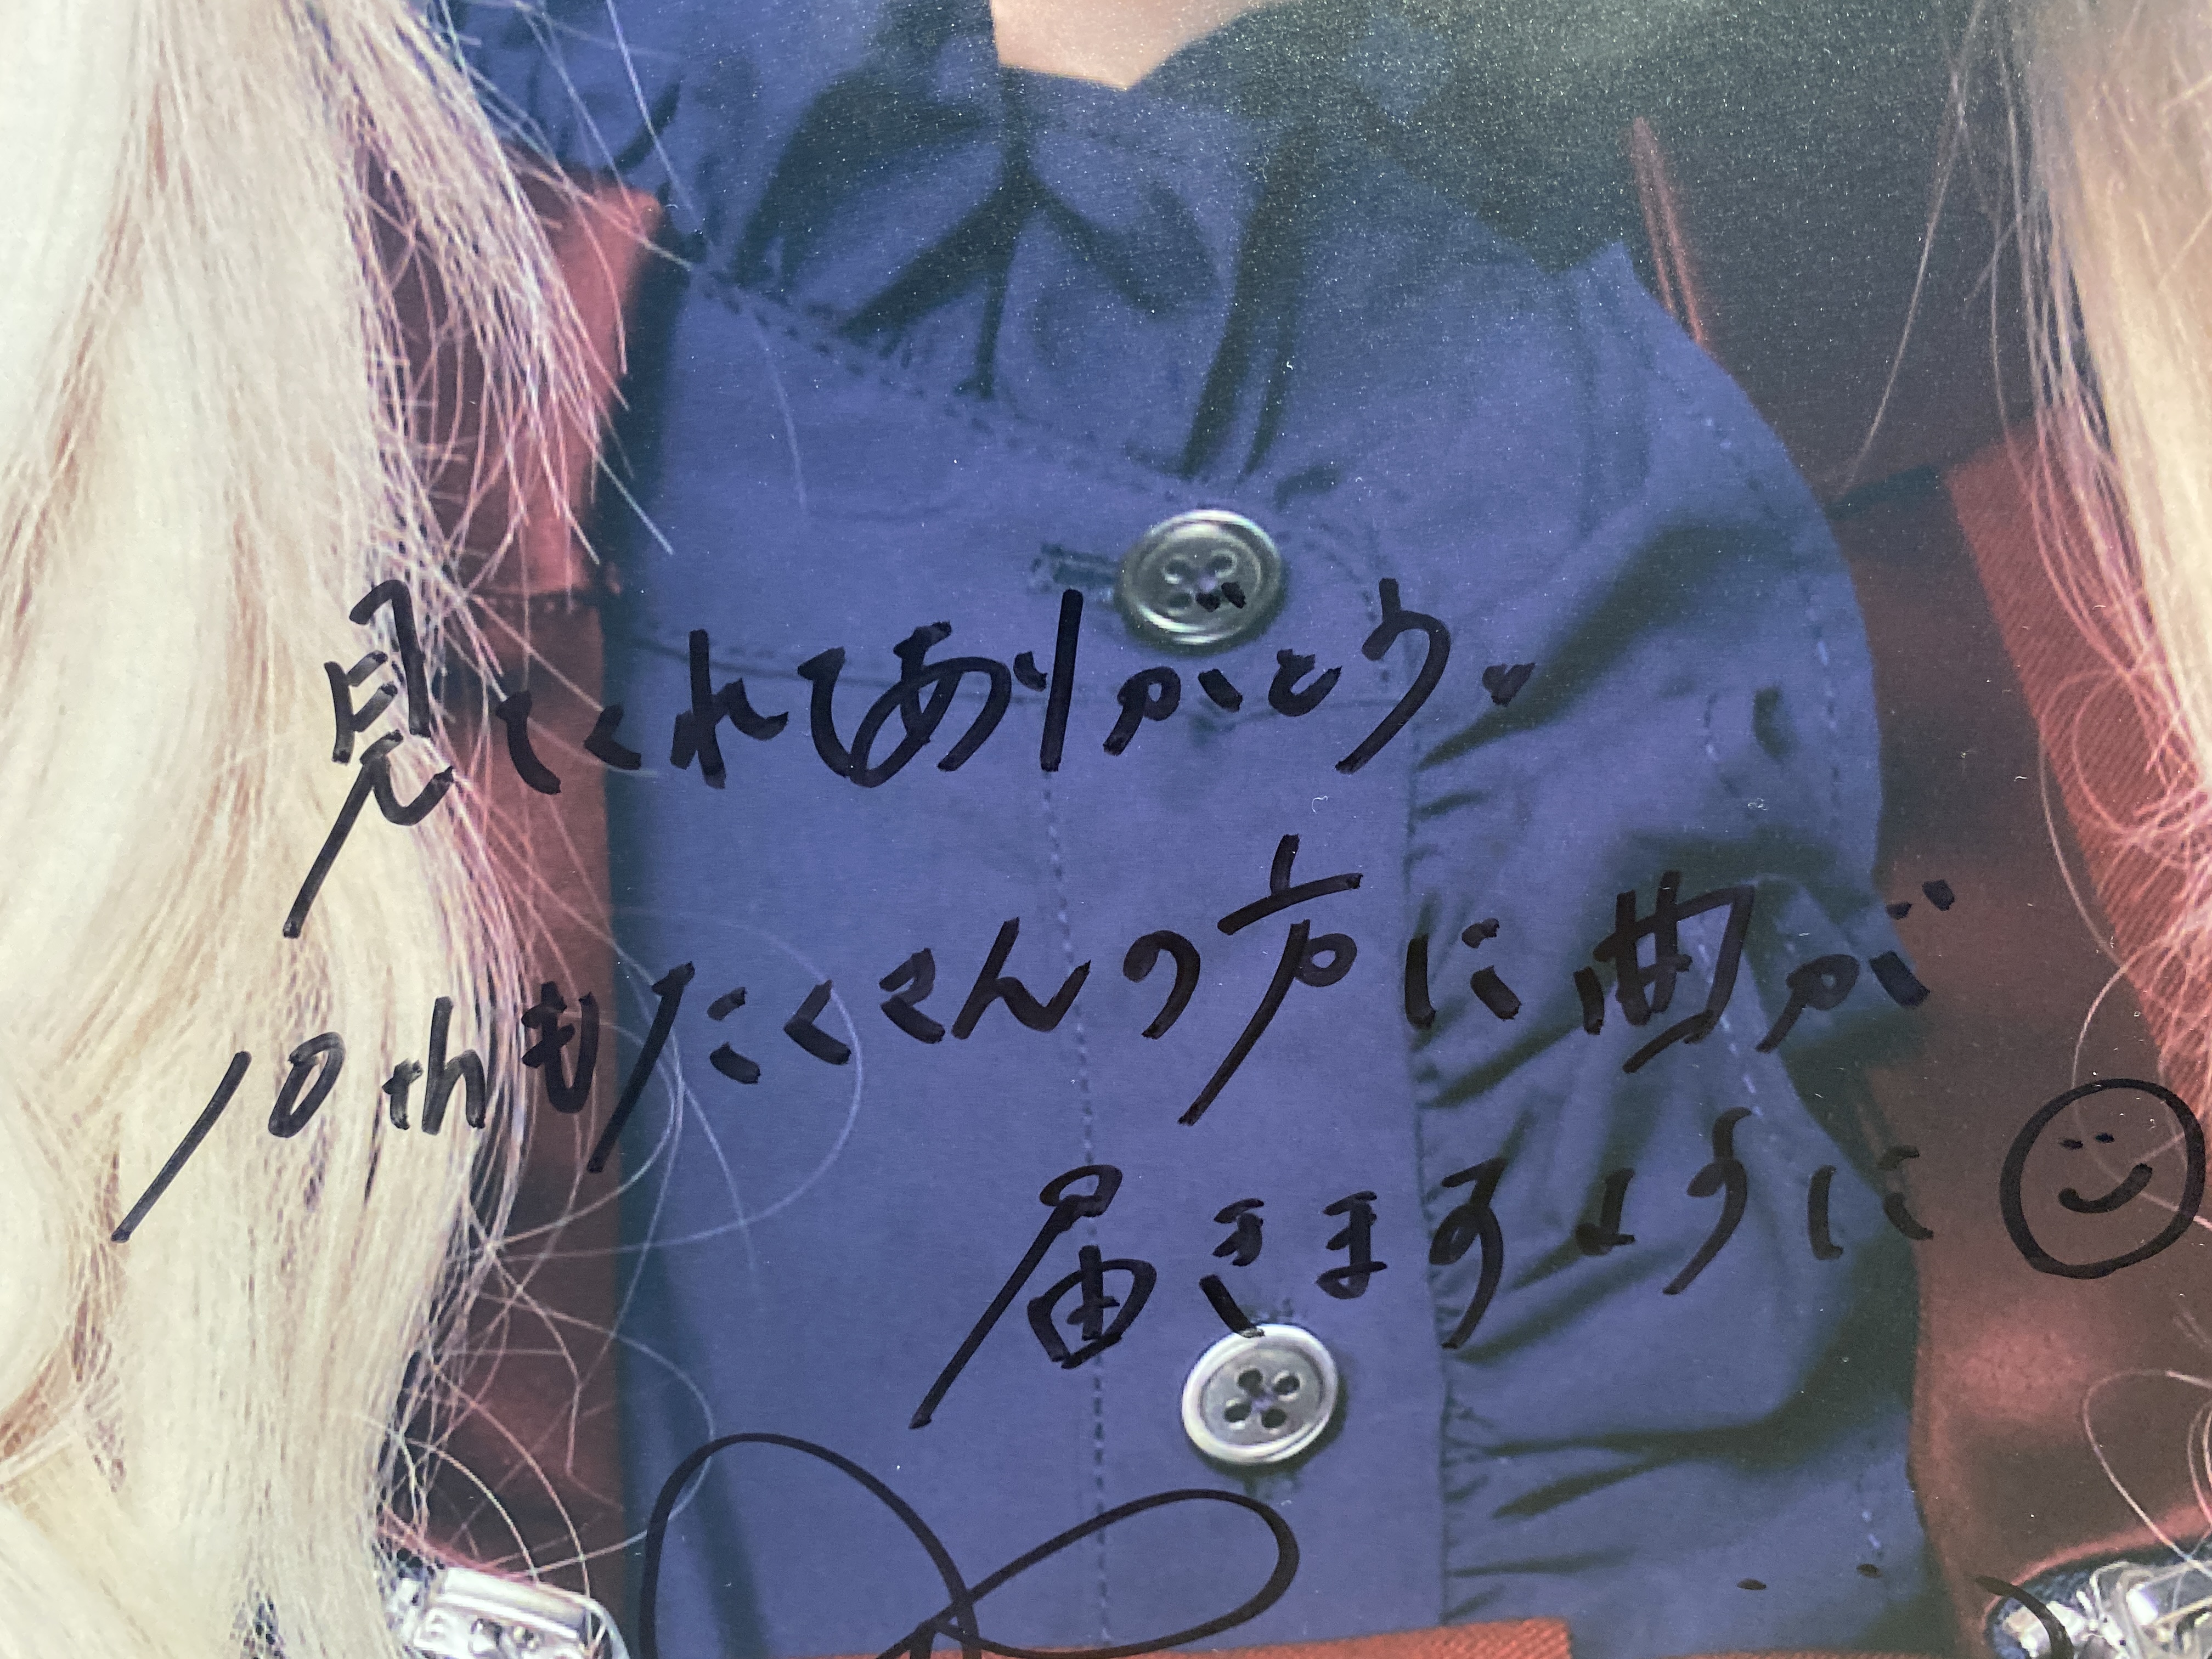 見てくれてありがとう
10thもたくさんの方に曲が
届きますように